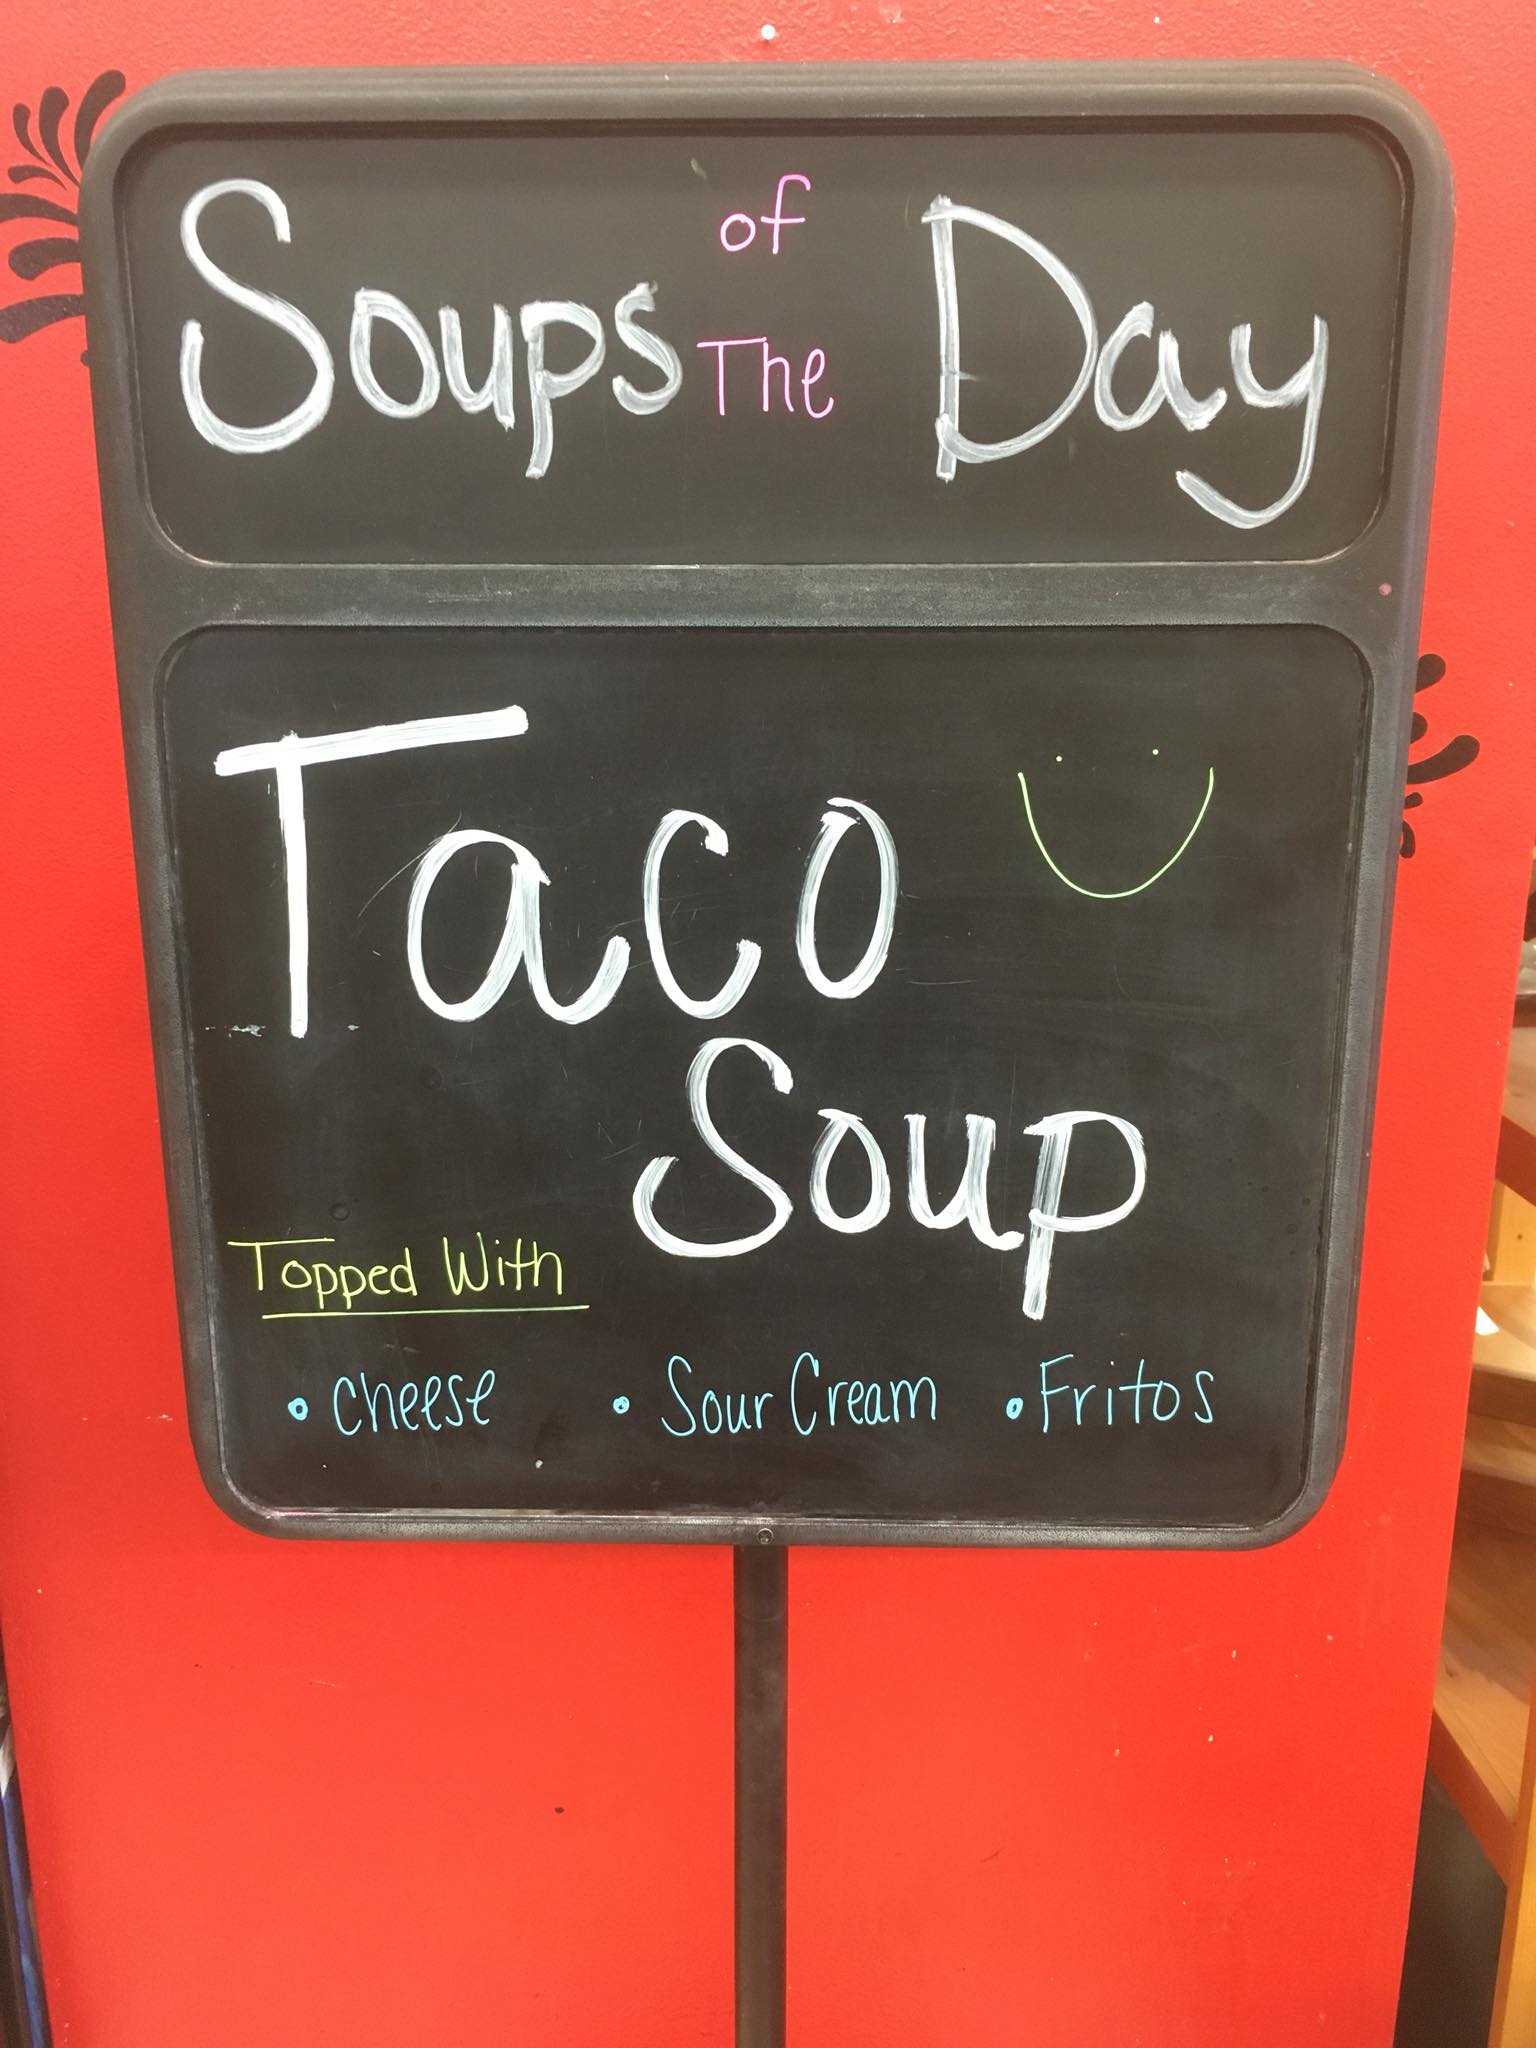 Soups of The Day
Taco
Soup
Topped With
• Cheese • Sour Cream • Fritos